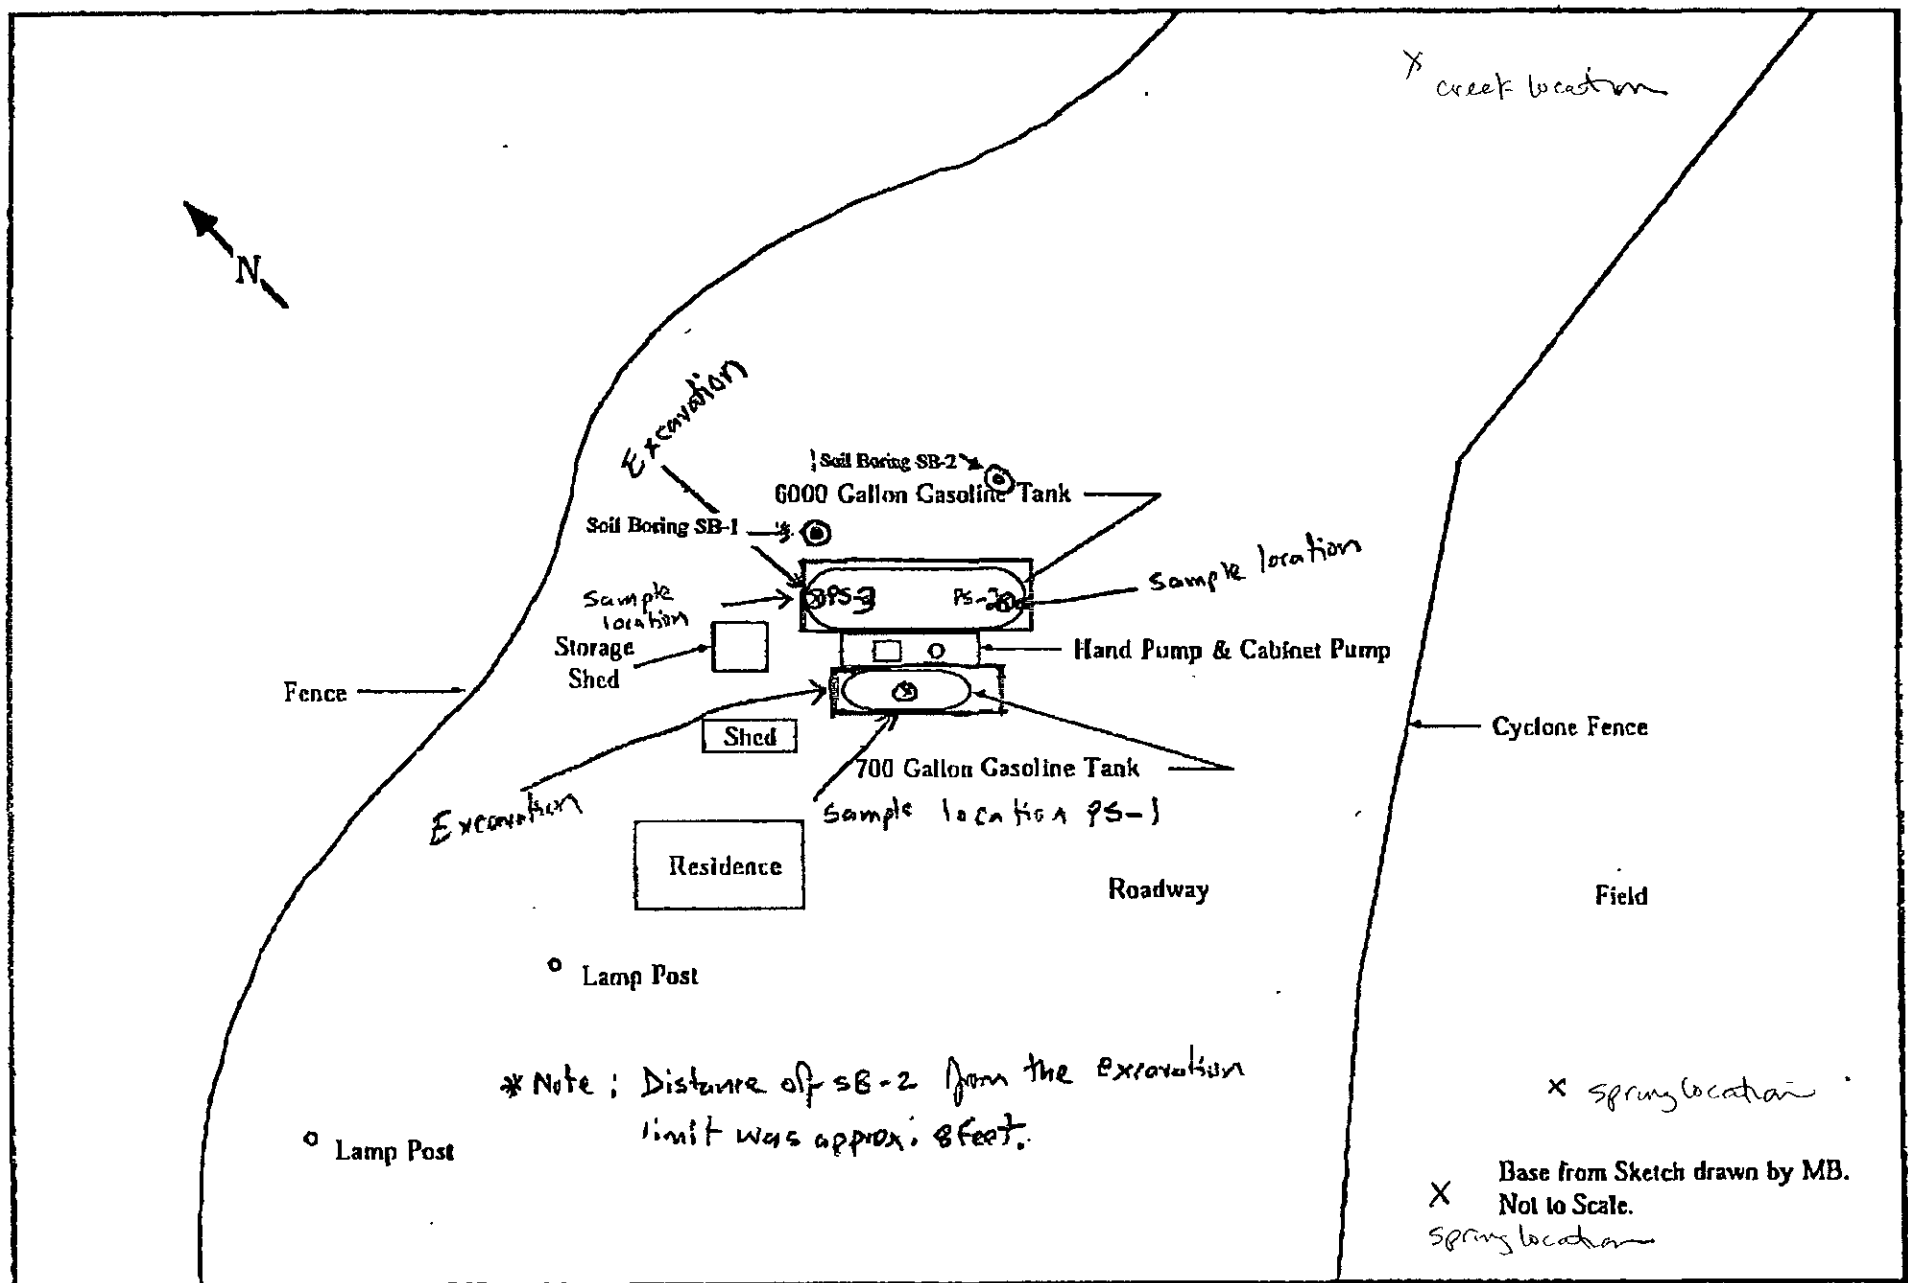 X
creek location
N
Excavation
Soil Boring SB-2
6000 Gallon Gasoline Tank
Soil Boring SB-1
sample location
sample
location
PS-3
PS-2
Storage
Shed
Hand Pump & Cabinet Pump
Fence
Shed
Cyclone Fence
700 Gallon Gasoline Tank
Excavation
sample location PS-1
Residence
Roadway
Field
Lamp Post
* Note : Distance of SB-2 from the excavation
limit was approx. 8 feet.
Lamp Post
X spring location
Base from Sketch drawn by MB.
Not to Scale.
X
spring location